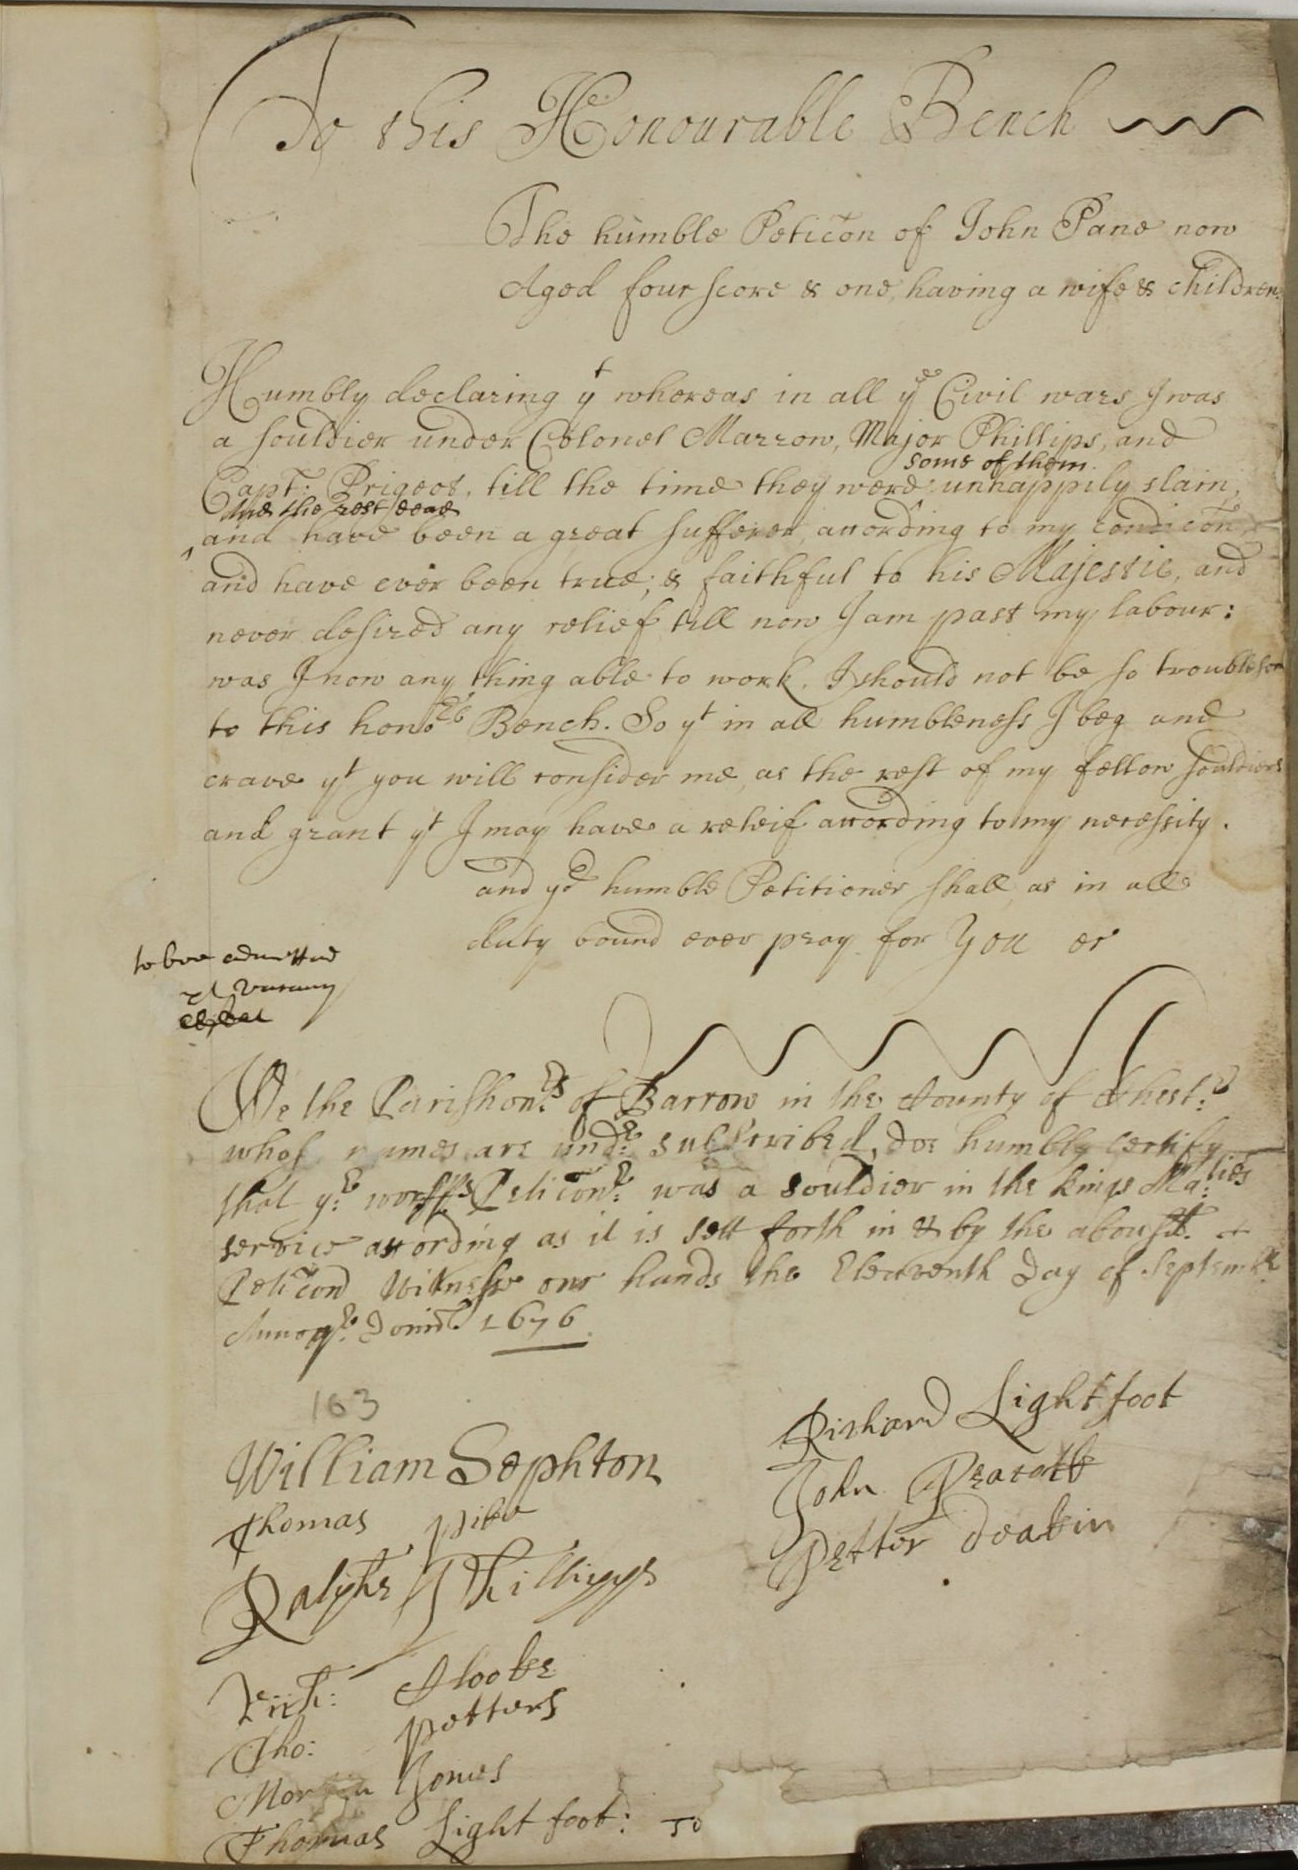 To this Honourable Bench
The humble Peticõn of John Pane now
Aged four score & one, having a wife & children.
Humbly declaring yt whereas in all ye Civil wars I was
a souldier under Colonel Marrow, Major Phillips, and
some of them
Capt: Prigeot, till the time they were unhappily slain,
And the rest dead
and have been a great sufferer, according to my condicõn,
and have ever been true, & faithful to his Majestie, and
never desired any relief till now I am past my labour:
was I now any thing able to work, I should not be so troublesom
to this honoble Bench. So yt in all humbleness I beg and
crave yt you will consider me, as the rest of my fellow souldiers
and grant yt I may have a releif according to my necessity.
and yor humble Petitioner shall, as in all
duty bound ever pray for You &c
to bee admitted
We the Parishonrs of Barrow in the County of Chestr
whose names are undr subscribed, doe humbly certify
that yr worpps Peticonr was a souldier in the kings Maties
service according as it is sett forth in & by the abousd
Peticõn Witnesse our hands the Eleaventh Day of Septembr
Annoqe Domi 1676
163
William Sephton
Richard Lightfoot
Thomas pike
John Peacocke
Petter deakin
Ralphe Phillipps
Rich: Clooke
Tho: petters
Martin Jones
Thomas Lightfoot: